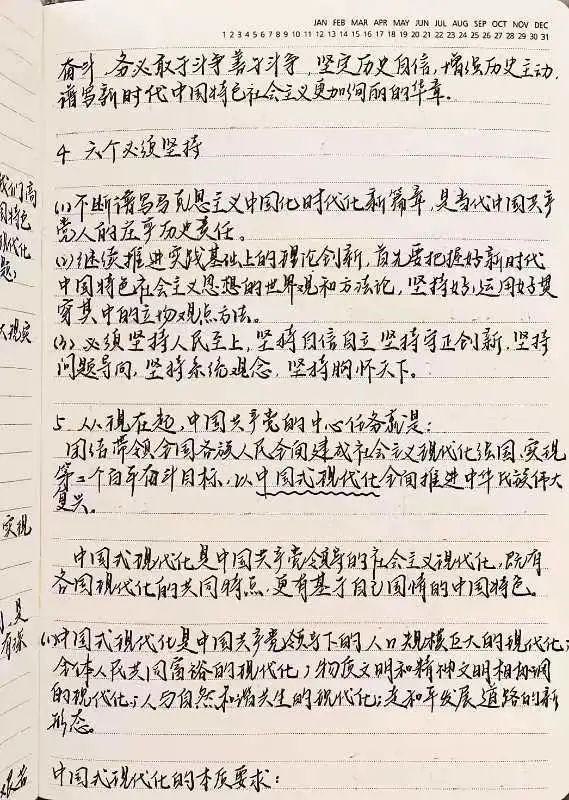 JAN FEB MAR APR MAY JUN JUL AUG SEP OCT NOV DEC
1 2 3 4 5 6 7 8 9 10 11 12 13 14 15 16 17 18 19 20 21 22 23 24 25 26 27 28 29 30 31
奋斗、务必敢于斗争善于斗争,坚定历史自信,增强历史主动,
谱写新时代中国特色社会主义更加绚丽的华章。
4 六个必须坚持
(1)不断谱写马克思主义中国化时代化新篇章,是当代中国共产
党人的庄严历史责任。
(2)继续推进实践基础上的理论创新,首先要把握好新时代
中国特色社会主义思想的世界观和方法论,坚持好,运用好贯
穿其中的立场观点方法。
(3)必须坚持人民至上,坚持自信自立 坚持守正创新,坚持
问题导向,坚持系统观念,坚持胸怀天下。
5 从现在起,中国共产党的中心任务就是:
团结带领全国各族人民全面建成社会主义现代化强国、实现
第二个百年奋斗目标,以中国式现代化全面推进中华民族伟大
复兴。
中国式现代化是中国共产党领导的社会主义现代化,既有
各国现代化的共同特点,更有基于自己国情的中国特色。
(1)中国式现代化是中国共产党领导下的人口规模巨大的现代化;
全体人民共同富裕的现代化;物质文明和精神文明相协调
的现代化;人与自然和谐共生的现代化;走和平发展道路的新
形态。
中国式现代化的本质要求:
我们高
国特色
现代化
题)
实现